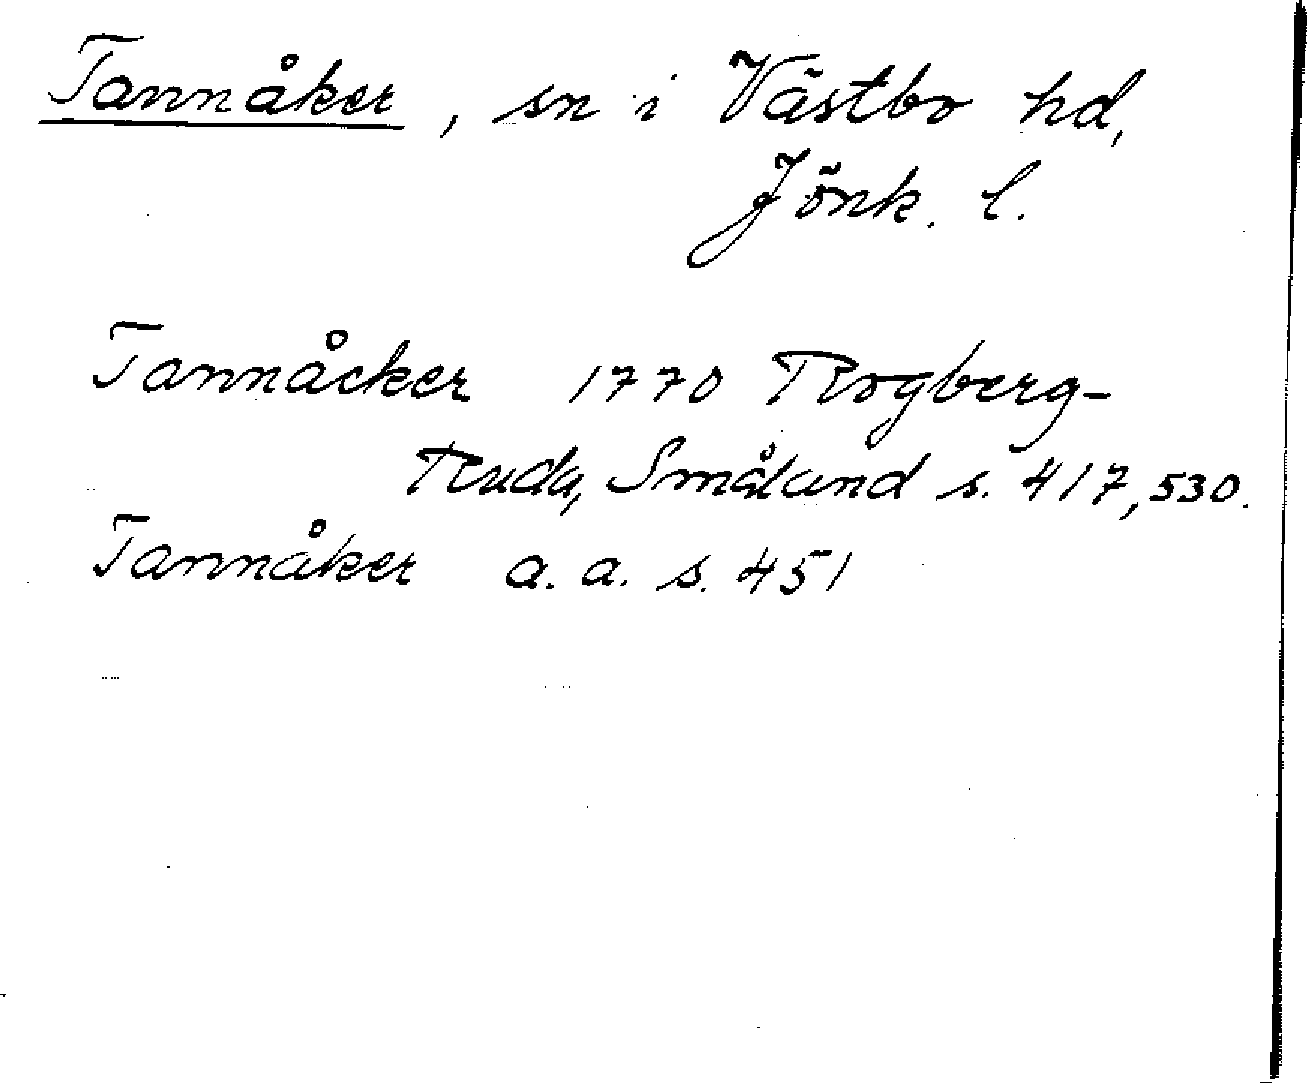 Tannåker, sn i Västbo hd,
Jönk. l.
Tannåcker 1770 Rogberg-
Ruda, Småland s. 417, 530.
Tannåker a. a. s. 451